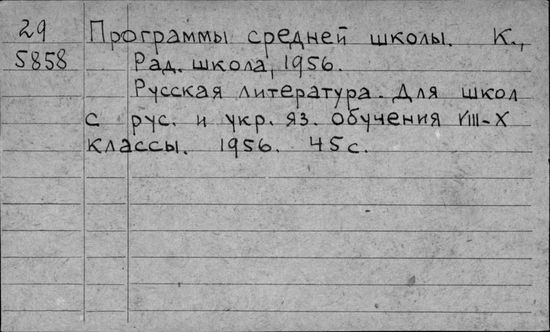 29
5858
Программы средней школы. К.,
Рад. школа, 1956.
Русская литература. Для школ
с рус. и укр. яз. обучения VIII-X
классы. 1956. 45 с.